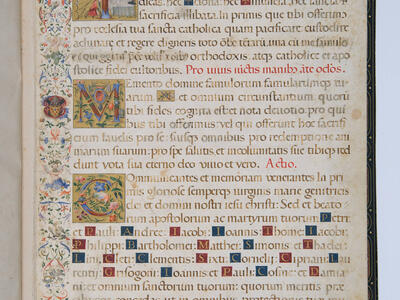 dicas: hec dona: hec munera: hec sancta
sacrificia illibata. In primis que tibi offerimus
pro ecclesia tua sancta catholica quam pacificare custodire
adunare et regere digneris toto
orthodoxis atque catholice et apo
stolice fidei cultoribus. Pro
Memento domine famulorum famularumque
tuarum et omnium circunstantium quorum
tibi fides cognita est et nota devotio pro qui
bus tibi offerimus: vel qui offerunt hoc sacri
ficium laudis pro se: suisque omnibus pro redemptione ani
marum suarum: pro spe salutis et incolumitatis sue tibique red
dunt vota sua eterno deo vivo et vero. Actio.
Communicantes et memoriam venerantes In pri
mis gloriose semperque virginis marie genitricis
dei et domini nostri iesu christi: Sed et beato
rum apostolorum ac martyrum tuorum Petri
et Pauli: Andree: Iacobi: Ioannis: Thome: Iacobi:
Philippi: Bartholomei: Matthei: Simonis et Thadei:
Lini: Cleti: Clementis: Sixti: Cornelii: Cipriani: Lau
rentii: Grisogoni: Ioannis et Pauli: Cosme et Damia
ni: et omnium sanctorum tuorum: quorum meritis